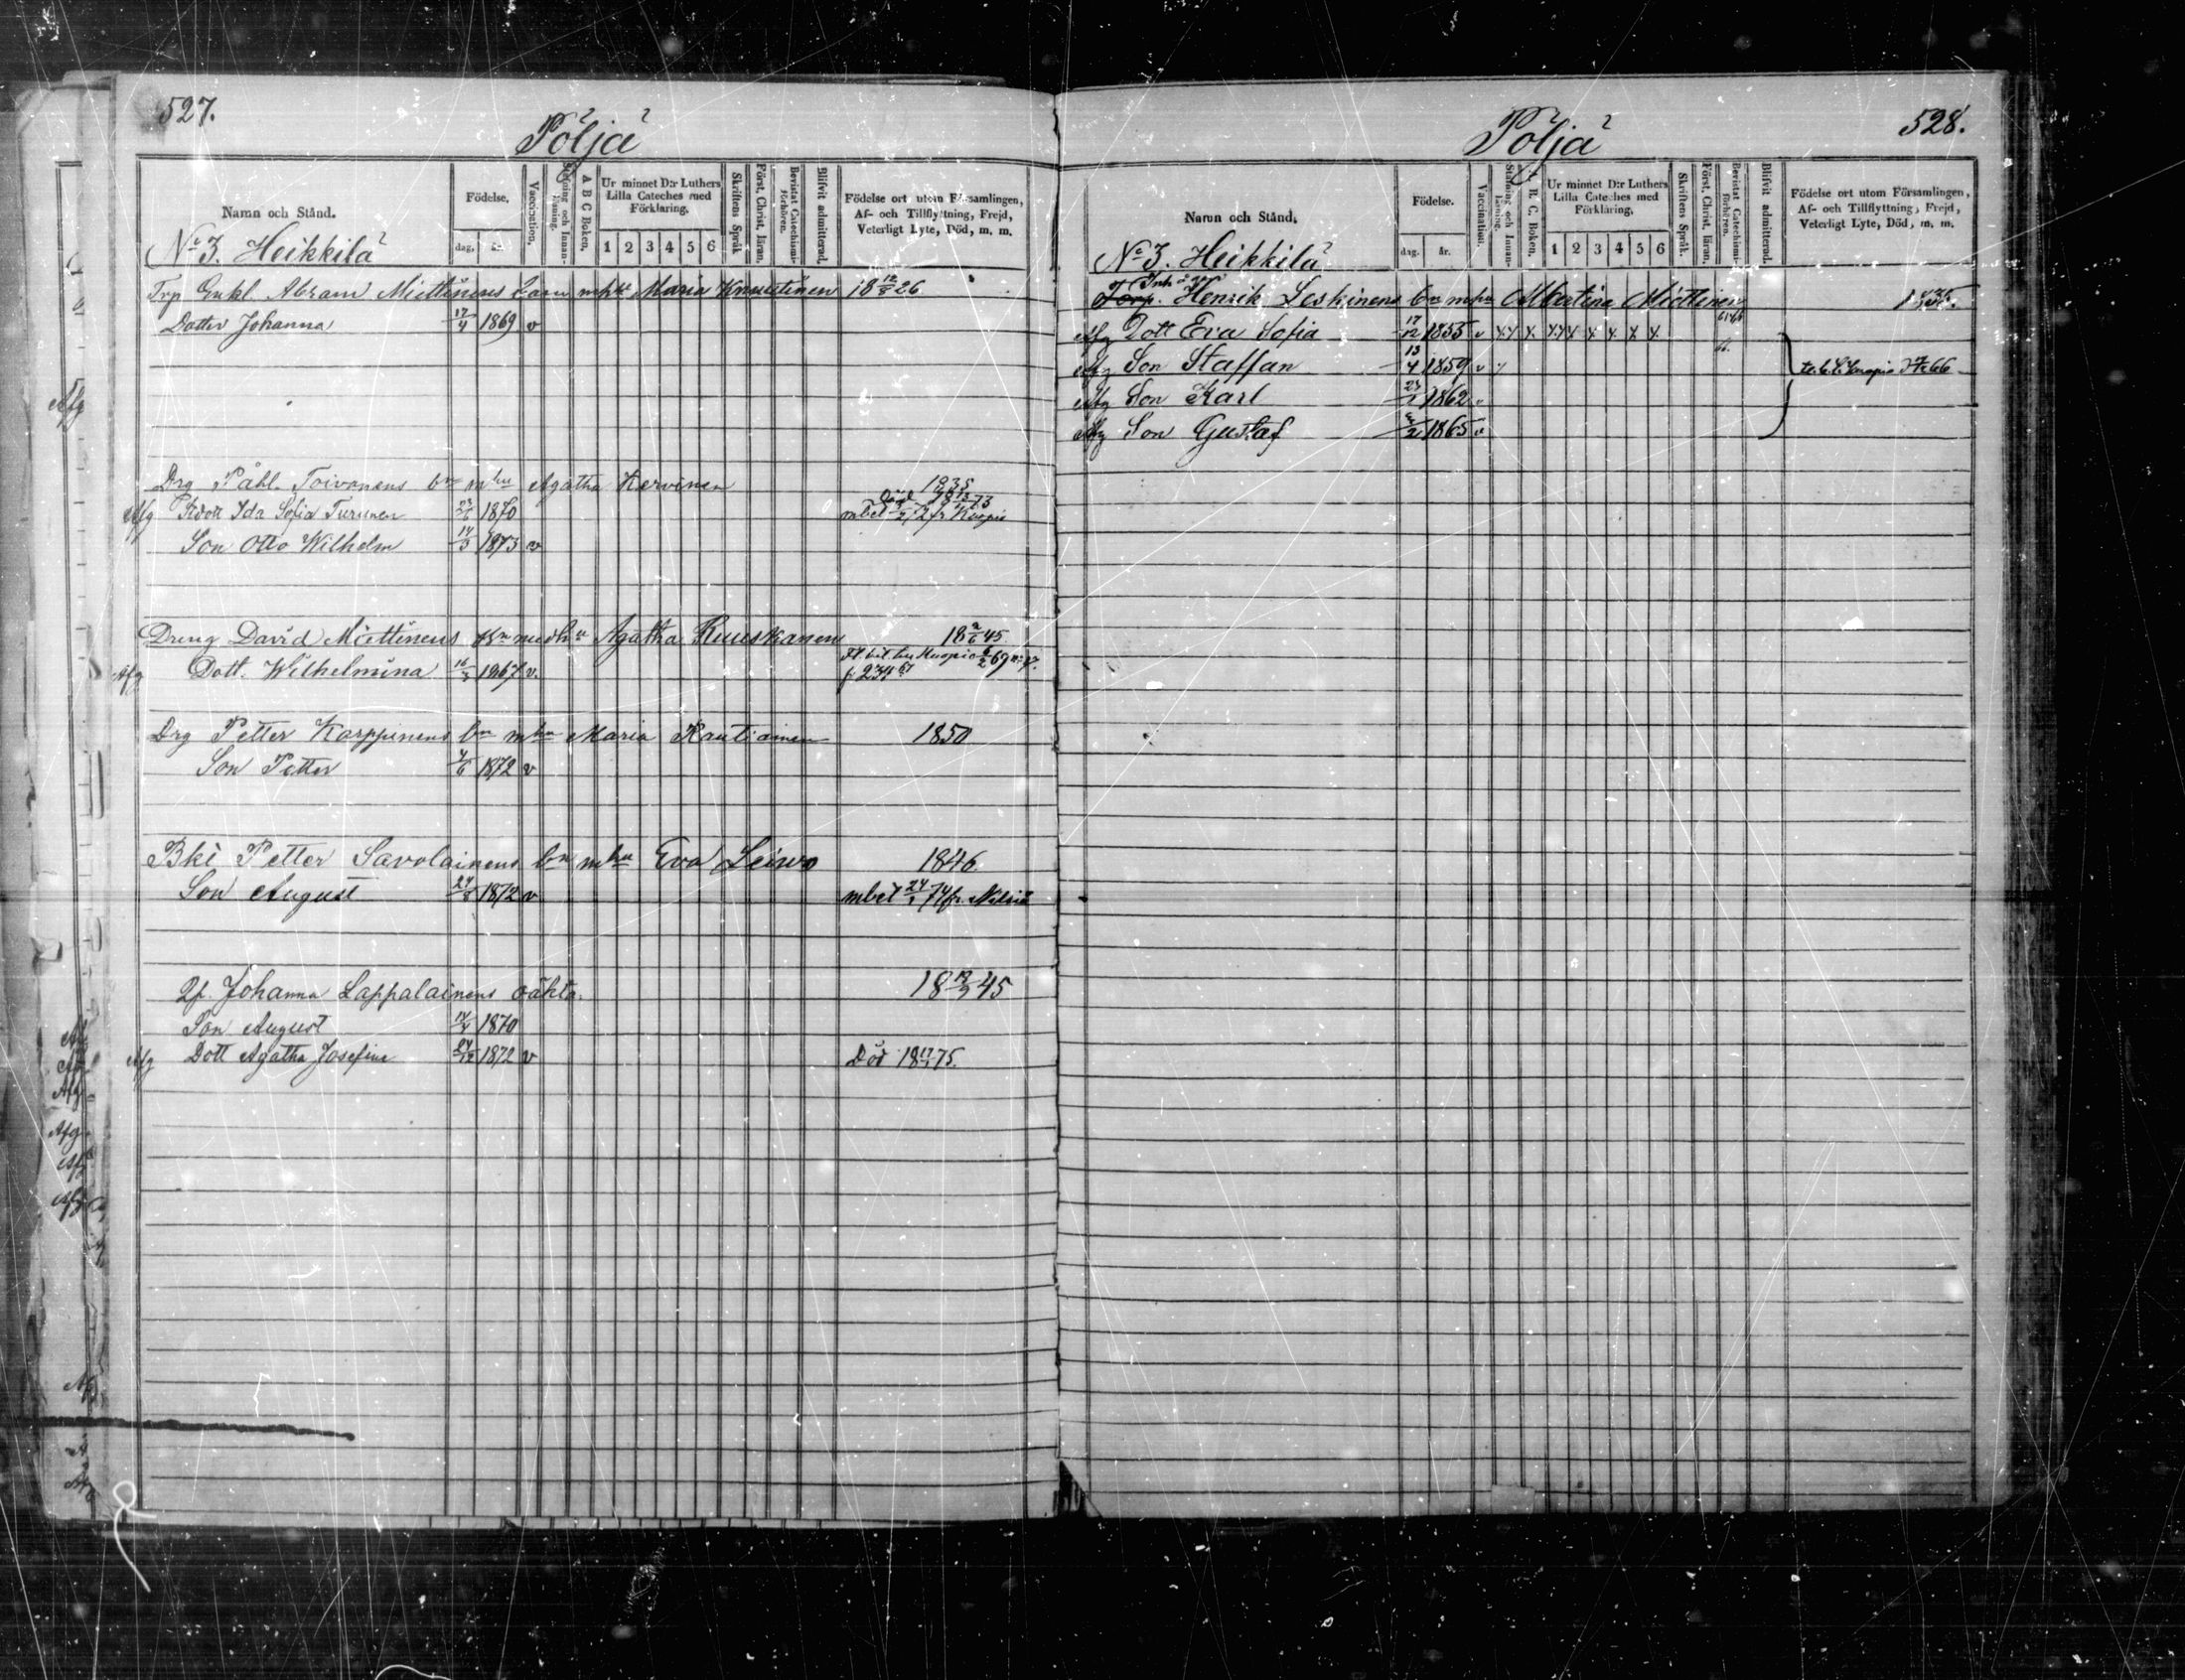 527.
Pöljä
Namn och Stånd.
Födelse.
dag. år.
Vaccination.
Stafning och Innan-läsning.
A B C Boken.
Ur minnet D:r Luthers Lilla Cateches med Förklaring.
1 2 3 4 5 6
Skriftens Språk
Först. Christ. läran.
Bevistat Catechismi-förhören.
Blifvit admitterad.
Födelse ort utom Församlingen, Af- och Tillflyttning, Frejd, Veterligt Lyte, Död, m. m.
No 3. Heikkilä
Trp Enkl. Abram Miettinens barn mhu Maria 18 26
Dotter Johanna 17/4 1869 v
Drg Påhl Toivanens bn mhu Agatha Kervinen 1835
Afg Ida Sofia Turunen 1870 Kuopio
Son Otto Wilhelm 14/3 1873 v
Dreng David Miettinens bn med hu Agatha Ruuskanen 18 45
Afg Dott. Wilhelmina 1867 v.
Drg Petter Karppinens bn mhu Maria Rautiainen 1850
Son Petter 1872 v
Bki Petter Savolainens bn mhu Eva Leivo 1846
Son August 1872 v mbet 24/1 74 fr. Nilsiä
Qp. Johanna Lappalainens oäkta 18 45
Son August 1870
Afg Dott Agatha Josefina 24/12 1872 v Död 18 75.
528.
Pöljä
Namn och Stånd.
Födelse.
dag. år.
Vaccination.
Stafning och Innan-läsning.
A. B. C. Boken.
Ur minnet D:r Luthers Lilla Cateches med Förklaring.
1 2 3 4 5 6
Skriftens Språk.
Först. Christ. läran.
Bevistat Catechismi-förhören.
Blifvit admitterad.
Födelse ort utom Församlingen, Af- och Tillflyttning, Frejd, Veterligt Lyte, Död, m. m.
No 3. Heikkilä
Torp. Henrik Leskinens bn mhu Albertina Miettinen
Afg Dott Eva Sofia 17/12 1855 v
Afg Son Staffan 13/4 1859 v
Afg Son Karl 1862
Afg Son Gustaf 1865 v